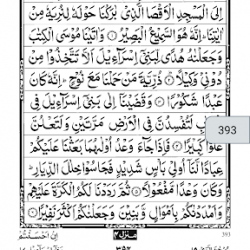 اِلَى الْمَسْجِدِ الْاَقْصَا الَّذِىْ بٰرَكْنَا حَوْلَهٗ لِنُرِيَهٗ مِنْ
اٰيٰتِنَا ؕ اِنَّهٗ هُوَ السَّمِيْعُ الْبَصِيْرُ ۞ وَاٰتَيْنَا مُوْسَى الْكِتٰبَ
وَجَعَلْنٰهُ هُدًى لِّبَنِىْۤ اِسْرَآءِيْلَ اَلَّا تَتَّخِذُوْا مِنْ
دُوْنِىْ وَكِيْلًا ۞ ذُرِّيَّةَ مَنْ حَمَلْنَا مَعَ نُوْحٍ ؕ اِنَّهٗ كَانَ
عَبْدًا شَكُوْرًا ۞ وَقَضَيْنَاۤ اِلٰى بَنِىْۤ اِسْرَآءِيْلَ فِى
الْكِتٰبِ لَتُفْسِدُنَّ فِى الْاَرْضِ مَرَّتَيْنِ وَلَتَعْلُنَّ
عُلُوًّا كَبِيْرًا ۞ فَاِذَا جَآءَ وَعْدُ اُوْلٰٮهُمَا بَعَثْنَا عَلَيْكُمْ
عِبَادًا لَّنَاۤ اُولِىْ بَاْسٍ شَدِيْدٍ فَجَاسُوْا خِلٰلَ الدِّيَارِ ؕ
وَكَانَ وَعْدًا مَّفْعُوْلًا ۞ ثُمَّ رَدَدْنَا لَكُمُ الْكَرَّةَ عَلَيْهِمْ
وَاَمْدَدْنٰكُمْ بِاَمْوَالٍ وَّبَنِيْنَ وَجَعَلْنٰكُمْ اَكْثَرَ نَفِيْرًا ۞
393
اِنْ اَحْسَنْتُمْ
منزل ۴
۳۹۳
393